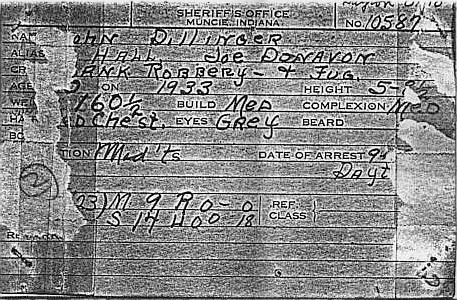 SHERIFF'S OFFICE
MUNCIE, INDIANA
No. 10587
NA
OHN DILLINGER
ALIAS HALL JOE DONAVON
CR ANK ROBBERY - + FUG.
AGE ON 1933 HEIGHT 5-
WE 160½ BUILD MED COMPLEXION MED
HA D Chest. EYES GREY BEARD
BO
TION Mud'ts DATE OF ARREST 9
Dayt
23) M 9 R O - O REF.
S 14 U OO 18 CLASS